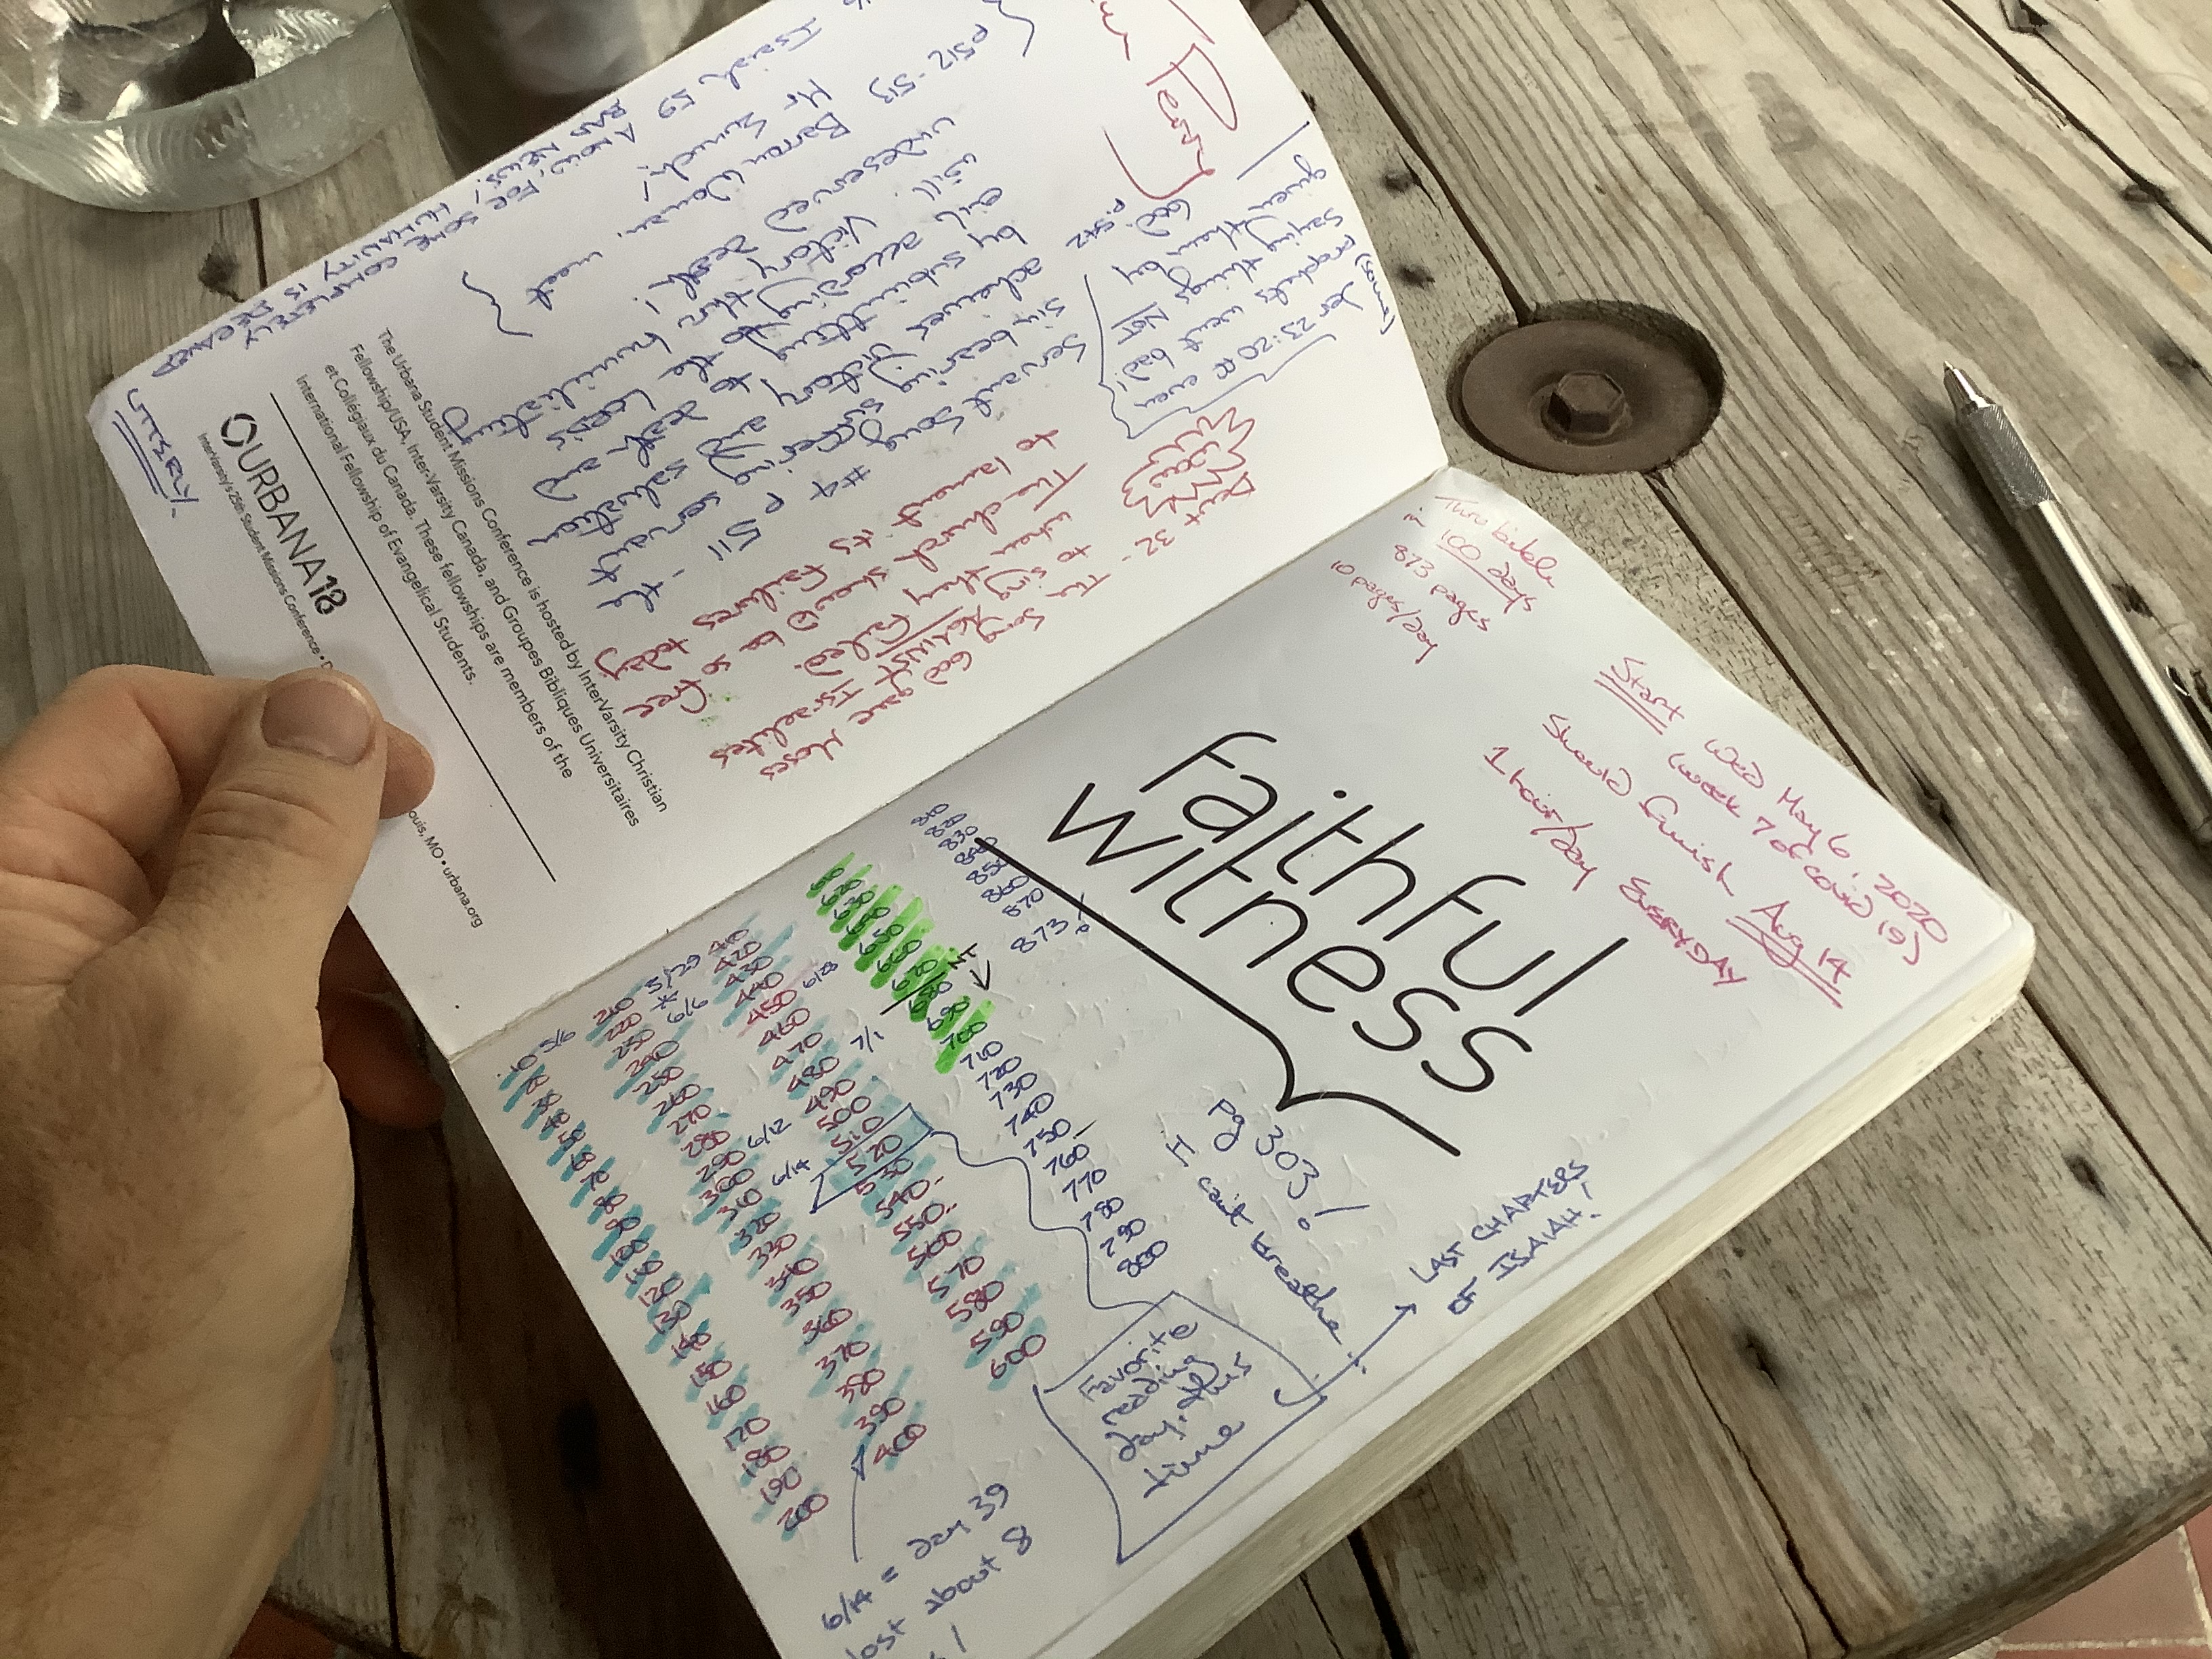 p512-513
Barren Woman.
Mr Eunuch!
undeserved death!
Victory thru humiliating
will.
Isaiah 59 A NOW, FOR SOME COMPLETELY
BAD NEWS! HUMANITY IS
MISERY.
#4 P 511 - the
Servant Song
sin bearing suffering servant
achieves victory and salvation
by submitting to death and
according to the Lord's
given them by
God. p. 542
saying things NOT
prophets went bad!
Jer 23:20ff even
Deut 32 - The song God gave Moses
to sing AGAINST Israelites
when they failed.
The church should be so free
to lament its failures today
URBANA18
InterVarsity's 25th Student Missions Conference •
ouis, MO • urbana.org
The Urbana Student Missions Conference is hosted by InterVarsity Christian
Fellowship/USA, InterVarsity Canada, and Groupes Bibliques Universitaires
et Collégiaux du Canada. These fellowships are members of the
International Fellowship of Evangelical Students.
Thru bible
in 100 days
873 pages
10 pages/day
Start Wed May 6, 2020
(week 7 of covid (9)
Should finish Aug 14
1 hour/day EVERYDAY
faithful
witness
10 5/6
20
30
40
50
60
70
80
90
100
110
120
130
140
150
160
170
180
190
200
210 5/29
220 *
230 6/6
240
250
260
270
280
290 6/12
300
310 6/14
320
330
340
350
360
370
380
390
400
410
420
430
440
450 6/28
460
470
480 7/1
490
500
510
520
530
540
550
560
570
580
590
600
610
620
630
650
660
670
680
NT
690
700
710
720
730
740
750
760
770
780
790
800
810
820
830
840
850
860
870
873!
pg 303!
I can't breathe...
Favorite
reading
day, this
time
LAST CHAPTERS
OF ISAIAH!
6/14 = Day 39
lost about 8